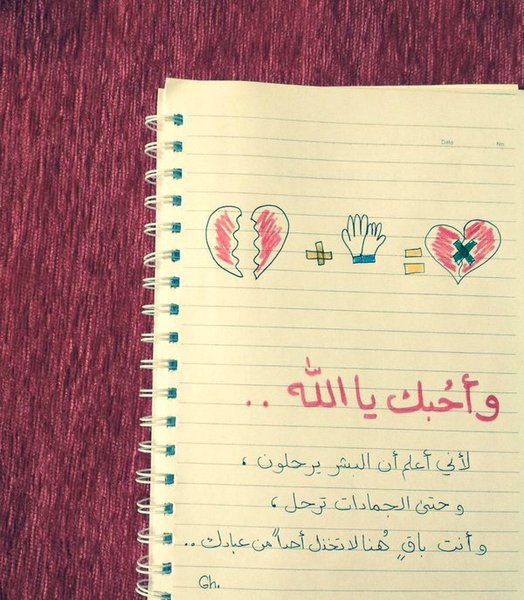 Date No.
وأحُبك يا اللّٰه ..
لأني أعلم أن البشر يرحلون ،
وحتىٰ الجمادات ترحل ،
وأنت باقٍ هُنا لا تخذل أحداً من عبادك ..
Gh.